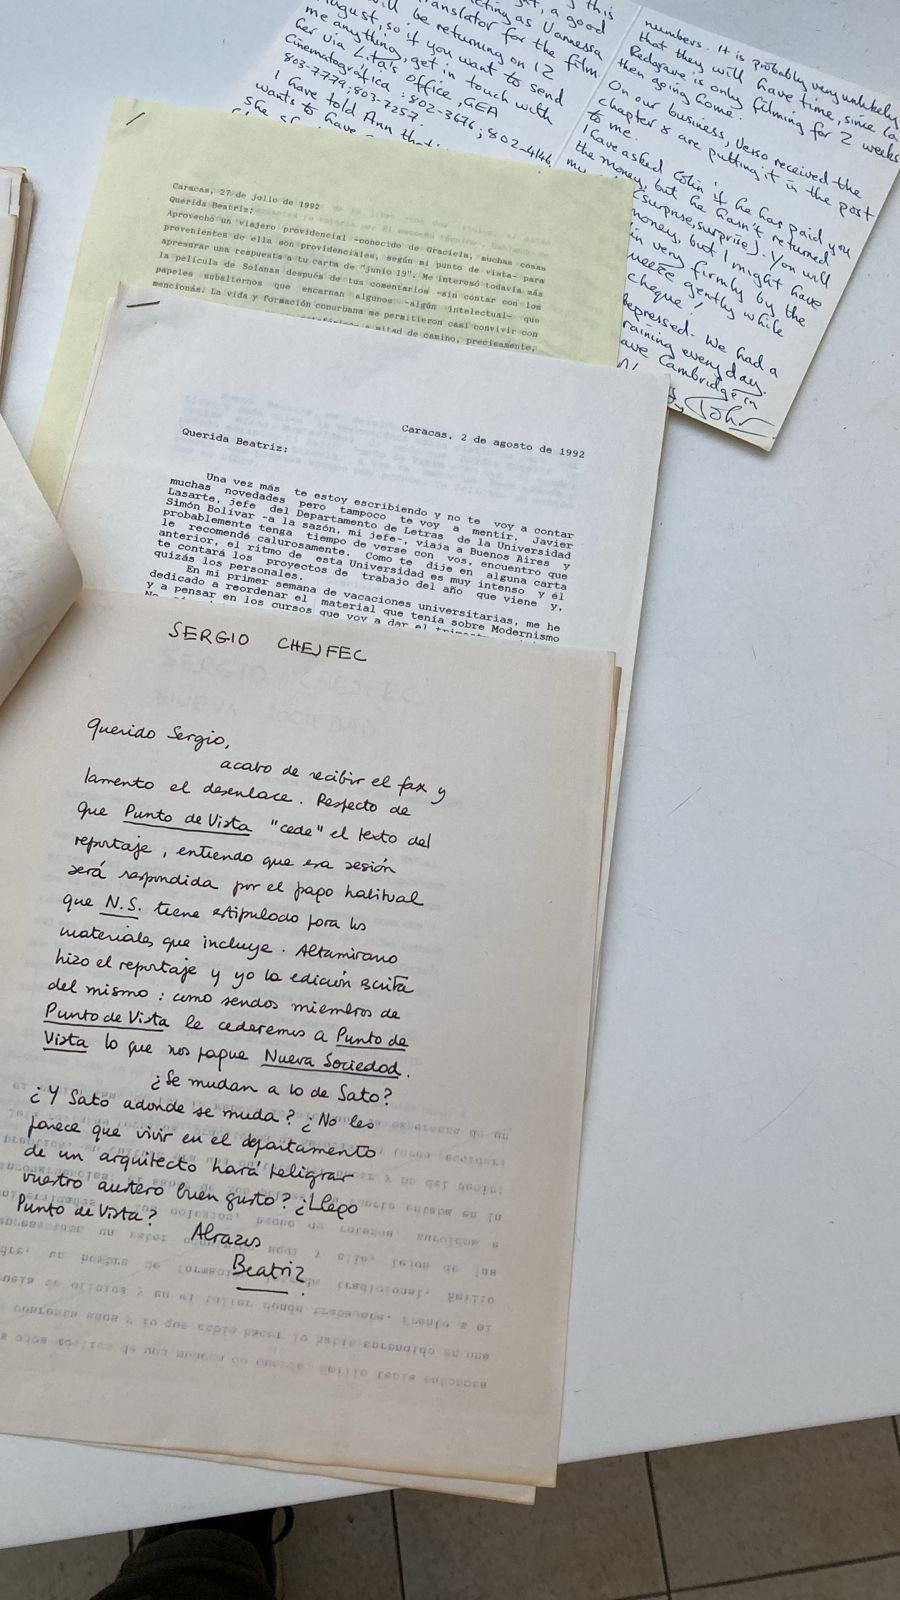 this
, a good
acting as Vannessa
translator for the film.
will be returning on 12
August, so if you want to send
me anything, get in touch with
her via Lita's office, GEA
Cinematográfica: 802-3676; 802-4146
803-7779; 803-7257.
I have told Ann that
wants to have
she
numbers. It is probably very unlikely
that they will have time, since La
Redgrave is only filming for 2 weeks
then going home.
On our business, Verso received the
chapter & are putting it in the post
to me.
I have asked Colin if he has paid you
the money, but he hasn't returned
my (surprise, surprise). You will
money, but I might have
in very firmly by the
gently while
cheque!
depressed. We had a
raining every day.
Cambridge in
John
Caracas, 27 de julio de 1992
Querida Beatriz:
Aprovechó un viajero providencial -conocido de Graciela, muchas cosas
provenientes de ella son providenciales, según mi punto de vista- para
apresurar una respuesta a tu carta de "junio 19". Me interesó todavía más
la película de Solanas después de tus comentarios -sin contar con los
papeles subalternos que encarnan algunos -algún intelectual- que
mencionás. La vida y formación conurbana me permitieron casi convivir con
a mitad de camino, precisamente,
Caracas, 2 de agosto de 1992
Querida Beatriz:
Una vez más te estoy escribiendo y no te voy a contar
muchas novedades pero tampoco te voy a mentir. Javier
Lasarte, jefe del Departamento de Letras de la Universidad
Simón Bolívar -a la sazón, mi jefe-, viaja a Buenos Aires y
probablemente tenga tiempo de verse con vos, encuentro que
le recomendé calurosamente. Como te dije en alguna carta
anterior, el ritmo de esta Universidad es muy intenso y él
te contará los proyectos de trabajo del año que viene y,
quizás los personales.
En mi primer semana de vacaciones universitarias, me he
dedicado a reordenar el material que tenía sobre Modernismo
y a pensar en los cursos que voy a dar el
SERGIO CHEJFEC
Querido Sergio,
acabo de recibir el fax y
lamento el desenlace. Respecto de
que Punto de Vista "cede" el texto del
reportaje, entiendo que esa sesión
será respondida por el pago habitual
que N.S. tiene estipulado para los
materiales que incluye. Altamirano
hizo el reportaje y yo la edición escrita
del mismo: como sendos miembros de
Punto de Vista le cederemos a Punto de
Vista lo que nos pague Nueva Sociedad.
¿Se mudan a lo de Sato?
¿Y Sato adonde se muda? ¿No les
parece que vivir en el departamento
de un arquitecto hará peligrar
vuestro austero buen gusto? ¿Llegó
Punto de Vista?
Abrazos
Beatriz